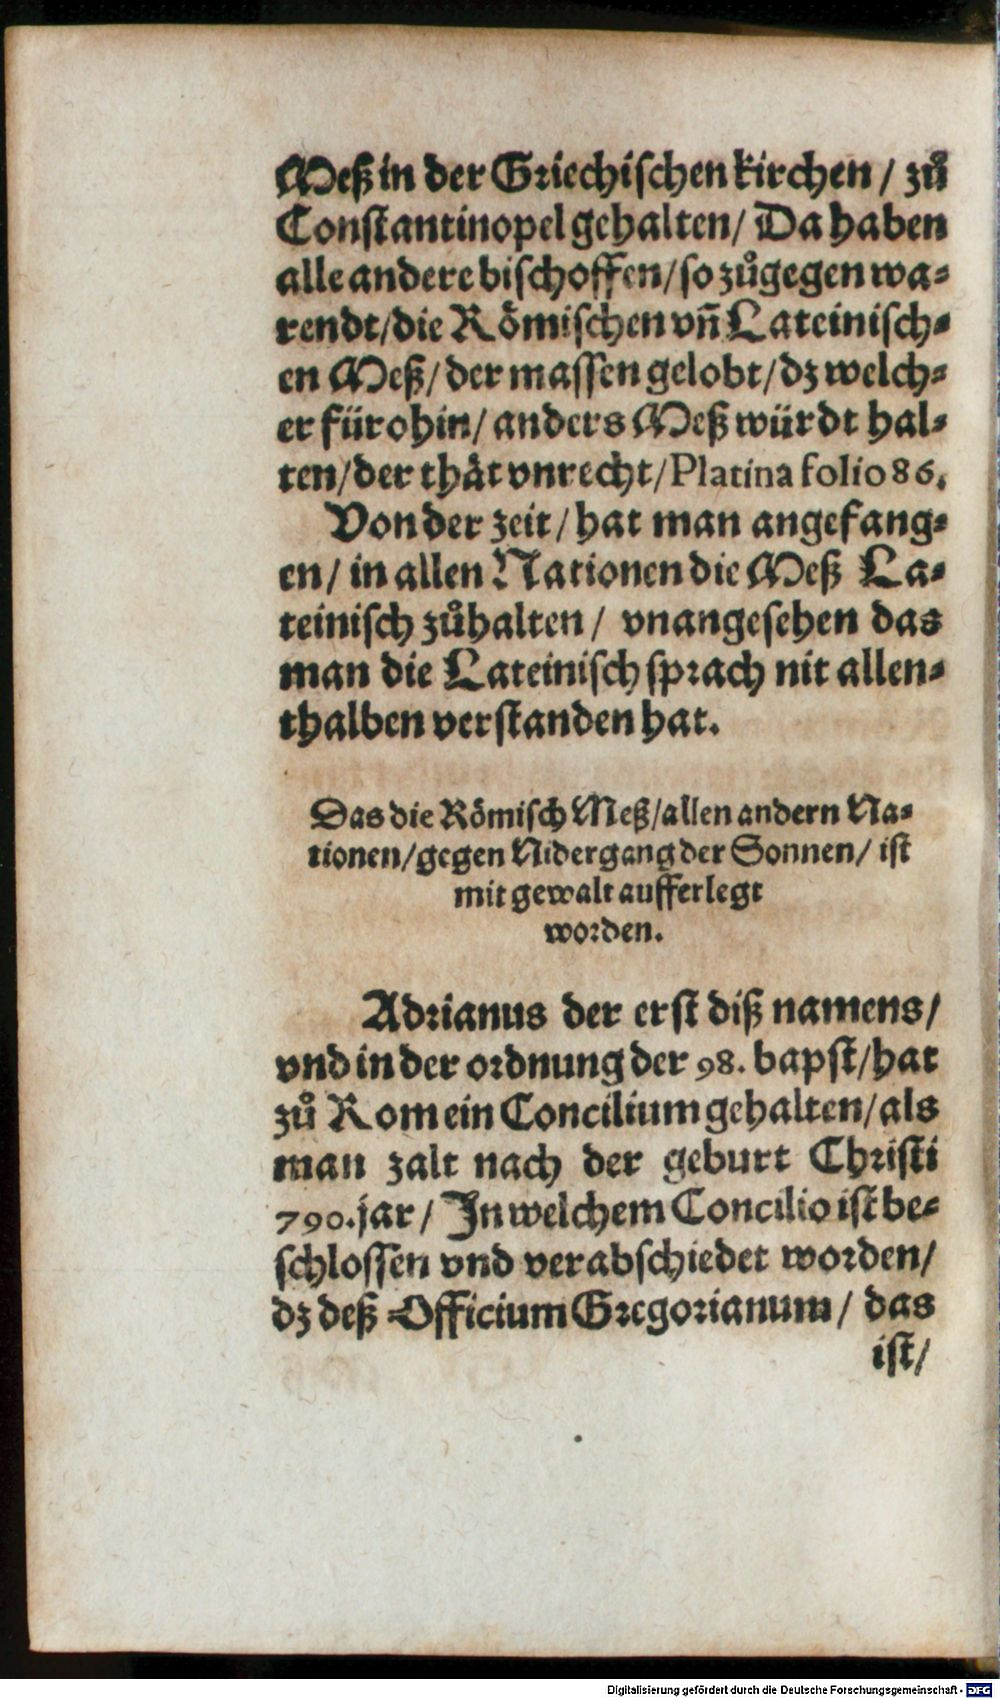 Meß in der Griechischen kirchen / zů
Constantinopel gehalten / Da haben
alle andere bischoffen / so zůgegen wa⸗
rendt / die Römischen vnd̄ Lateinisch⸗
en Meß / der massen gelobt / dz welch⸗
er fürohin / anders Meß würdt hal⸗
ten / der thät vnrecht / Platina folio 86.
Von der zeit / hat man angefang⸗
en / in allen Nationen die Meß La⸗
teinisch zůhalten / vnangesehen das
man die Lateinisch sprach nit allen⸗
thalben verstanden hat.
Das die Römisch Meß / allen andern Na⸗
tionen / gegen Nidergang der Sonnen / ist
mit gewalt aufferlegt
worden.
Adrianus der erst diß namens /
vnd in der ordnung der 98. bapst / hat
zů Rom ein Concilium gehalten / als
man zalt nach der geburt Christi
790. jar / In welchem Concilio ist be⸗
schlossen vnd verabschiedet worden /
dz deß Officium Gregorianum / das
ist /
Digitalisierung gefördert durch die Deutsche Forschungsgemeinschaft - DFG